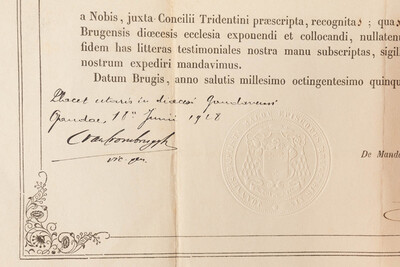 a Nobis, juxta Concilii Tridentini præscripta, recognita; qua
Brugensis diœcesis ecclesia exponendi et collocandi, nullaten
fidem has litteras testimoniales nostra manu subscriptas, sigil
nostrum expediri mandavimus.
Datum Brugis, anno salutis millesimo octingentesimo quinqu
Placet utaris in diœcesi Gandavensi
Gandae, 11ª Junii
vic. gen.
De Manda